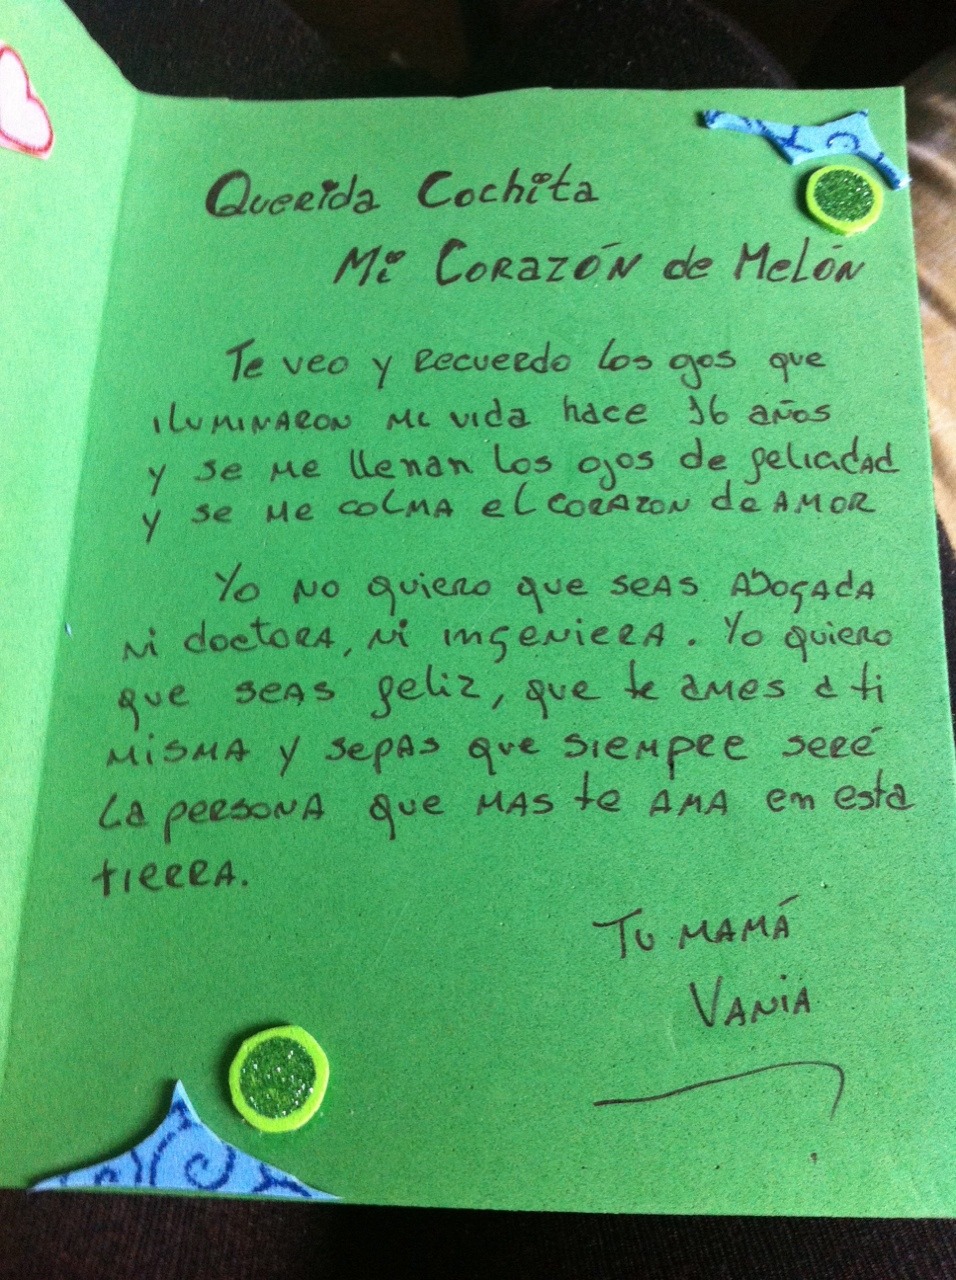 Querida Cochita
Mi Corazón de Melón
Te veo y recuerdo los ojos que
iluminaron mi vida hace 16 años
y se me llenan los ojos de felicidad
y se me colma el corazon de amor
Yo no quiero que seas abogada
ni doctora, ni ingeniera. Yo quiero
que seas feliz, que te ames a ti
misma y sepas que siempre seré
la persona que mas te ama en esta
tierra.
Tu mamá
Vania